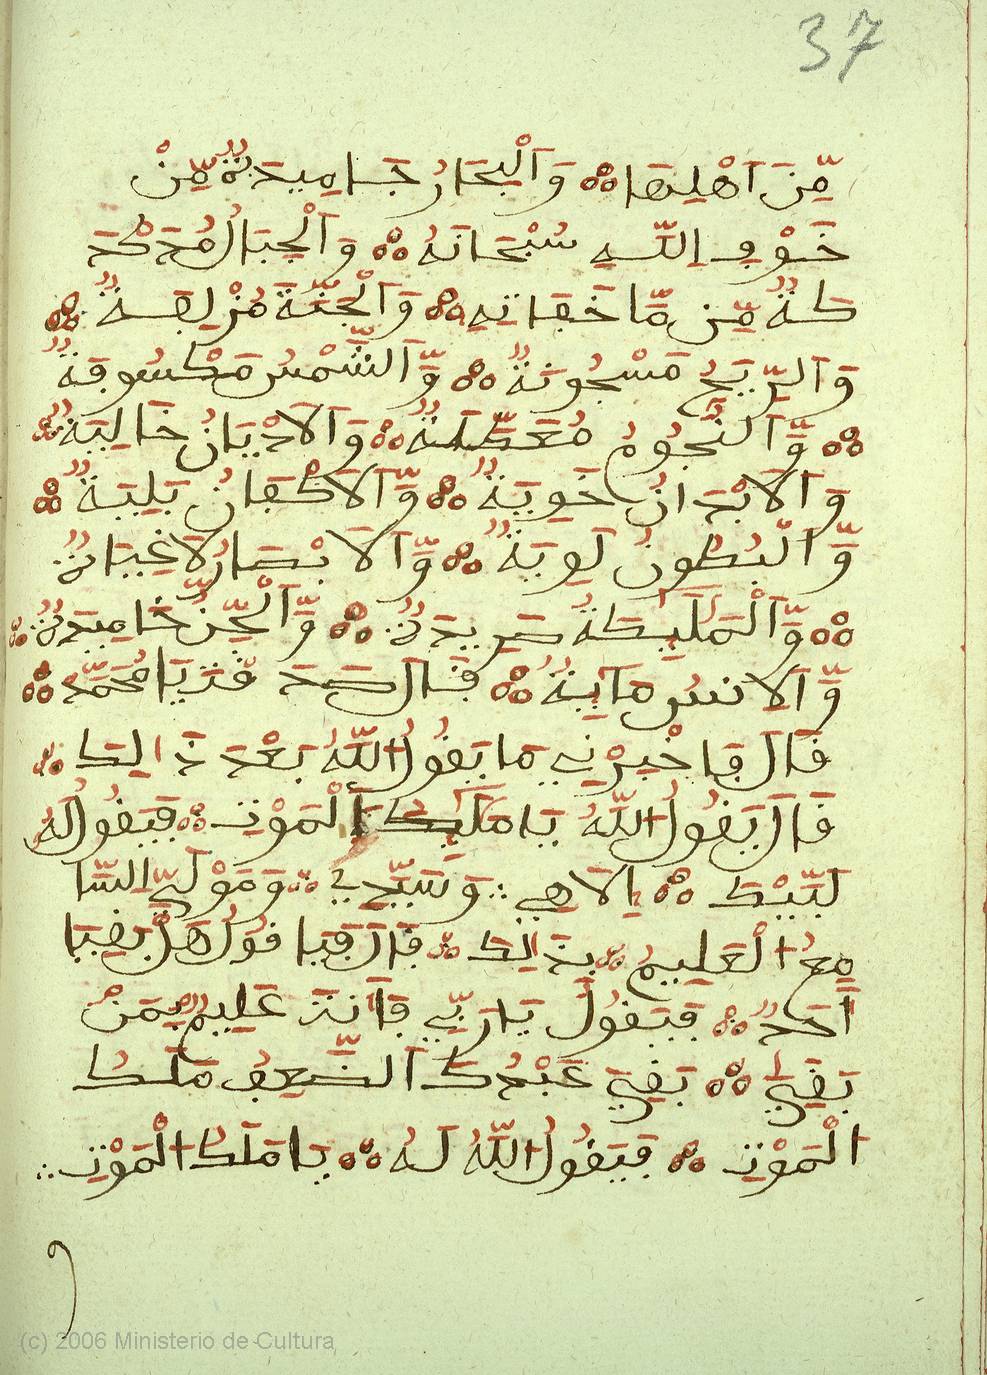 37
مِّنَ اَهْلِهَا ۞ وَالْبِحَارُ جَامِيدَةٌ مِّنْ
خَوْفِ اِللَّهِ سُبْحَانَهُ ۞ وَالْجِبَالُ مُدَكْدَ
كَةٌ مِّن مَّاخَفَاتِهِ ۞ وَالْجَنَّةَ مُزْلِفَةٌ ۞
وَالرِّيحُ مَسْجُونَةٌ ۞ وَّالشَّمْسُ مَكْسُوفَةٌ
۞ وَّالنُّجُومُ مُعَطَّلَةٌ ۞ وَالَادْيَانُ خَالِيَةٌ ۞
وَالَابْدَانُ خَوِيَةٌ ۞ وَّالَاكْفَانُ بَلِيَةٌ ۞
وَّالْبُطُونُ لَوِيَةٌ ۞ وَّالَابْصَارُ لَاغِيَاةٌ
۞ وَّالْمَلَٰيِكَةُ صَرِيدَةٌ ۞ وَّالْجِنُّ خَامِيدَةٌ ۞
وَّالِانسُ مَايِتَةٌ ۞ قَالَ صَدَقْتَ يَا مُحَمَّدْ ۞
قَالَ فَاخْبِرْنِي مَا يَقُولُ اللَّهُ بَعْدَ ذَالِكَ ۞
قَالَ يَقُولُ اللَّهُ يَا مَلَكَ اَلْمَوْتِ ۞ فَيَقُولُ لَهُ
لَبَّيْكَ ۞ اِلَاهِي ۞ وَسَيِّدِي ۞ وَمَوْلَيَّ السَّا
مِعُ الْعَلِيمُ ۞ بِذَالِكَ ۞ قَالَ فَيَا قُولُ هَلْ بَقِيَا
اَحَدٌ ۞ فَيَقُولُ يَا رَبِّي فَاَنتَ عَلِيمٌ بِمَنْ
بَقِيَ ۞ بَقِيَ عَبْدُكَ الضَّعِيفِ مَلَكُ
الْمَوْتِ ۞ فَيَقُولُ اللَّهُ لَهُ ۞ يَا مَلَكُ الْمَوْتِ ۞
(c) 2006 Ministerio de Cultura